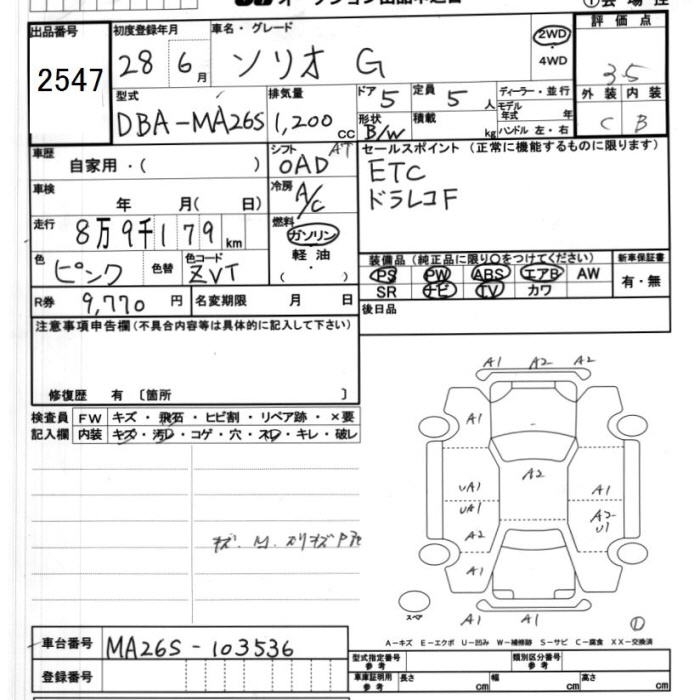 出品番号 初度登録年月 車名・グレード 評価点
2547 28 6月 ソリオ G 2WD・4WD 3.5
外装 内装
C B
型式 排気量 ドア 5 定員 5人 ディーラー・並行
DBA-MA26S 1,200cc 形状 B/W 積載 kg モデル年式 年
ハンドル 左・右
車歴 自家用・( ) シフト AT OAD
セールスポイント(正常に機能するものに限ります)
ETC
ドラレコF
車検 年 月( 日) 冷房 A/C
走行 8万9千179km 燃料 ガソリン・軽油・( )
色 ピンク 色替 色コード ZVT
装備品(純正品に限り○をつけてください) 新車保証書
PS PW ABS エアB AW 有・無
SR ナビ TV カワ
R券 9,770円 名変期限 月 日
後日品
注意事項申告欄(不具合内容等は具体的に記入して下さい)
修復歴 有 〔箇所 〕
検査員 FW キズ・飛石・ヒビ割・リペア跡・×要
記入欄 内装 キズ・汚レ・コゲ・穴・スレ・キレ・破レ
A1 A2 A2
A1 A1
A2
UA1 A1
UA1 A2
U1
A2
A1 A1
A1 A1
スペア
①
A-キズ E-エクボ U-凹み W-補修跡 S-サビ C-腐食 XX-交換済
車台番号 MA26S-103536
登録番号
型式指定番号 参考 類別区分番号 参考
車庫証明用 参考 長さ cm 幅 cm 高さ cm